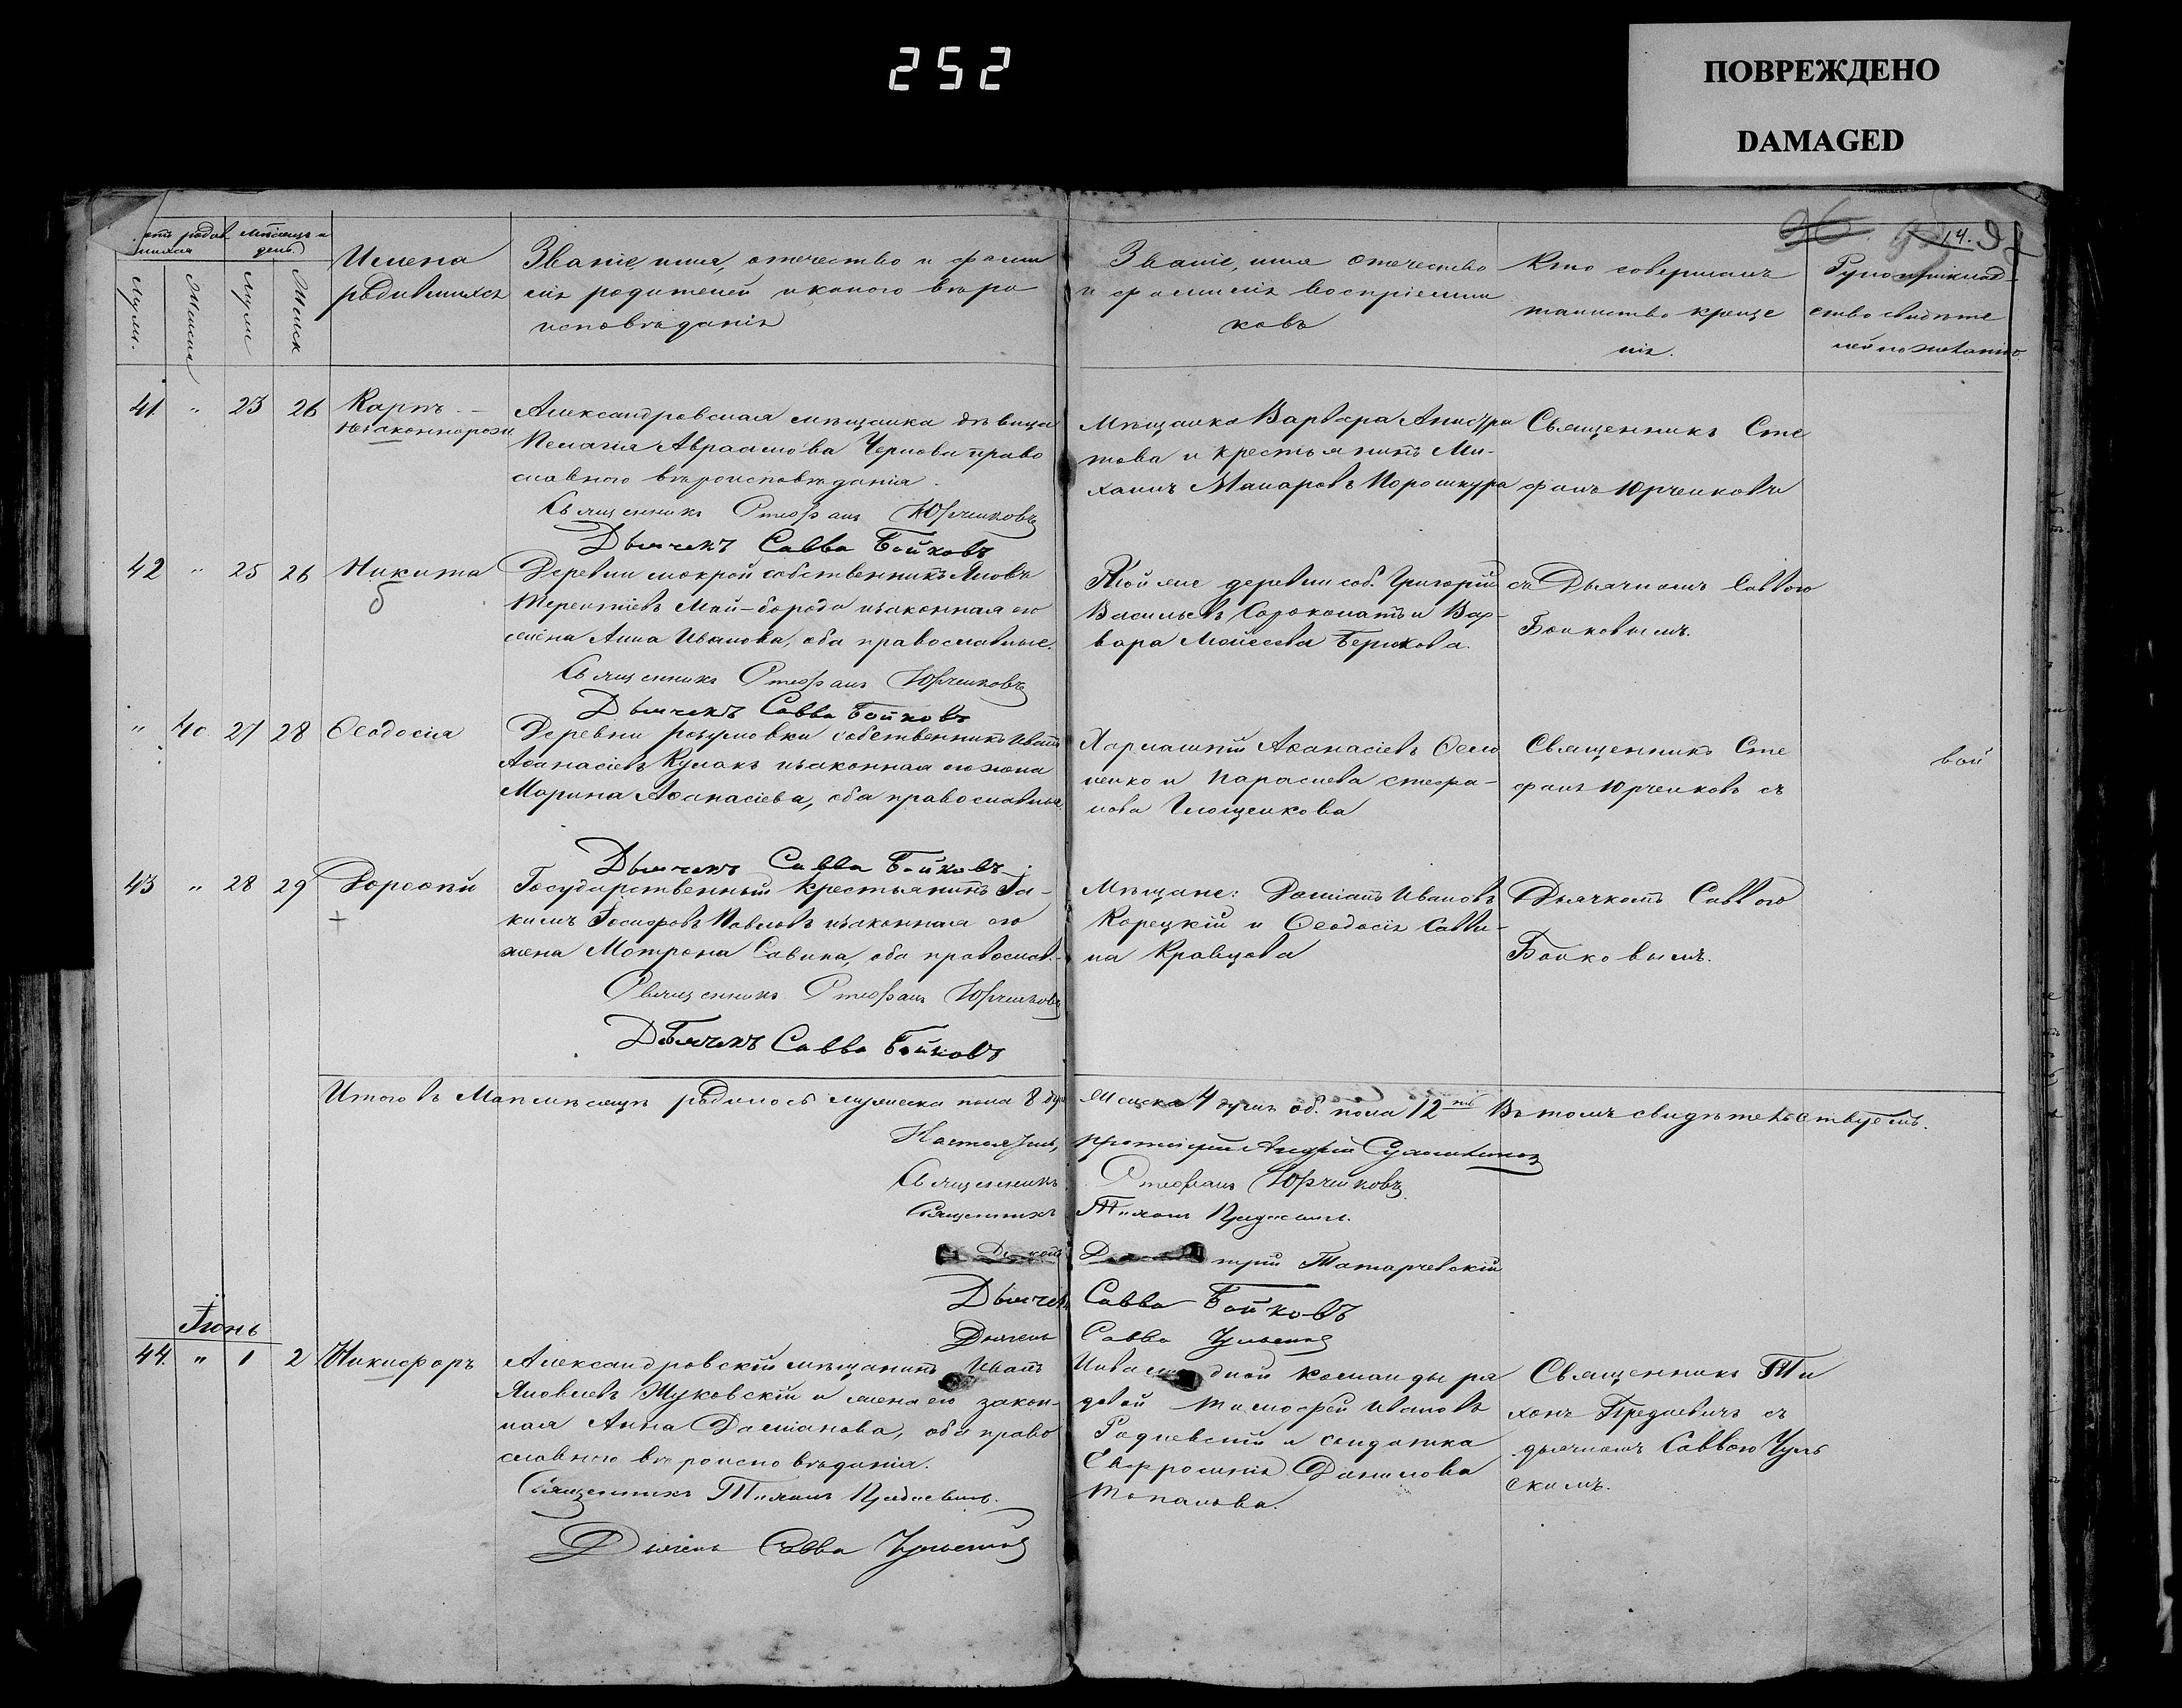 252
ПОВРЕЖДЕНО
DAMAGED
14.
мѣсяцъ и
день
Имена
родившихся
Званіе, имя, отечество и фами
лія родителей и какого вѣро
исповѣданія
Званіе, имя отечество
и фамилія воспріемни
ковъ
Кто совершалъ
таинство креще
нія.
Рукоприклад
ство свидѣте
лей по желанію
41 " 23 26 Карпъ
незаконнорож
Александровская мѣщанка дѣвица
Пелагія Авраамова Чернова право
славного вѣроисповѣданія.
Священникъ Стефанъ Юрченковъ
Дьячекъ Савва Бойковъ
Мѣщанка Варвара
това и крестьянинъ Ми-
хаилъ Макаровъ
Священникъ Сте
фанъ Юрченковъ
42 " 25 26 Никита
Деревни мокрой собственникъ Яковъ
Терентіевъ Май-борода и законная его
жена Анна Иванова, оба православные.
Священникъ Стефанъ Юрченковъ
Дьячекъ Савва Бойковъ
Той же деревни соб. Григорій
Васильевъ и Вар-
вара Моисеева
съ Дьячкомъ Саввою
Бойковымъ.
" 40 27 28 Ѳеодосія
Деревни розумовки собственникъ Иванъ
Аѳанасіевъ Кулакъ и законная его жена
Марина Аѳанасіева, оба православные.
Дьячекъ Савва Бойковъ
Аѳанасіевъ
и Параскева Стефа-
нова
Священникъ Сте
фанъ Юрченковъ съ
вой
43 " 28 29 Дороѳей
+
Государственный крестьянинъ Іа-
кимъ Іосифовъ Павловъ и законная его
жена Мотрона Савина, оба православ.
Священникъ Стефанъ Юрченковъ
Дьячекъ Савва Бойковъ
Мѣщане: Даміанъ Ивановъ
Корецкій и Ѳеодосія Савви-
на Кравцова
Дьячкомъ Саввою
Бойковымъ.
Итого въ Маи мѣсяцѣ родилось мужеска пола 8 душъ
женска 4 душъ об. пола 12 Въ томъ свидѣтельствуемъ.
Настоятель, протоіерей Андрей
Священникъ Стефанъ Юрченковъ
Священникъ Тихонъ Предаевичъ.
Татарчевскій
Дьячекъ Савва Бойковъ
Дьячекъ Савва Чульскій
Іюнь
44. " 1 2 Никифоръ
Александровскій мѣщанинъ Иванъ
Яковлевъ Жуковскій и жена его закон-
ная Анна Даміанова, оба право
славного вѣроисповѣданія.
Священникъ Тихонъ Предаевичъ.
Дьячекъ Савва Чульскій
дной команды ря
довой Тимофей Ивановъ
и солдатка
Евфросинія Данилова
Священникъ Ти
хонъ Предаевичъ съ
дьячкомъ Саввою Чуль
скимъ.